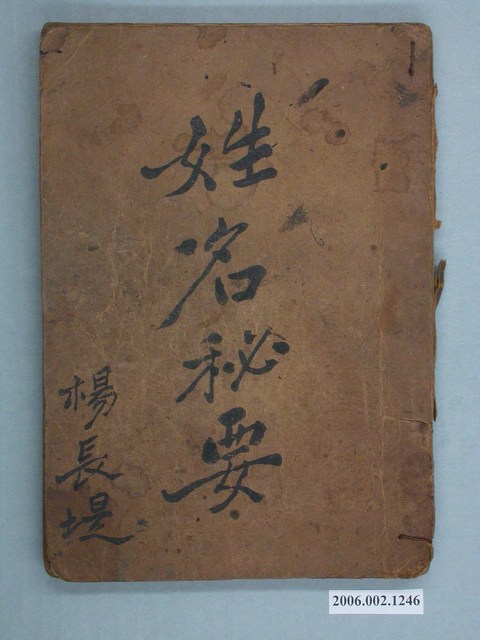 姓名秘要
楊長堤
2006.002.1246